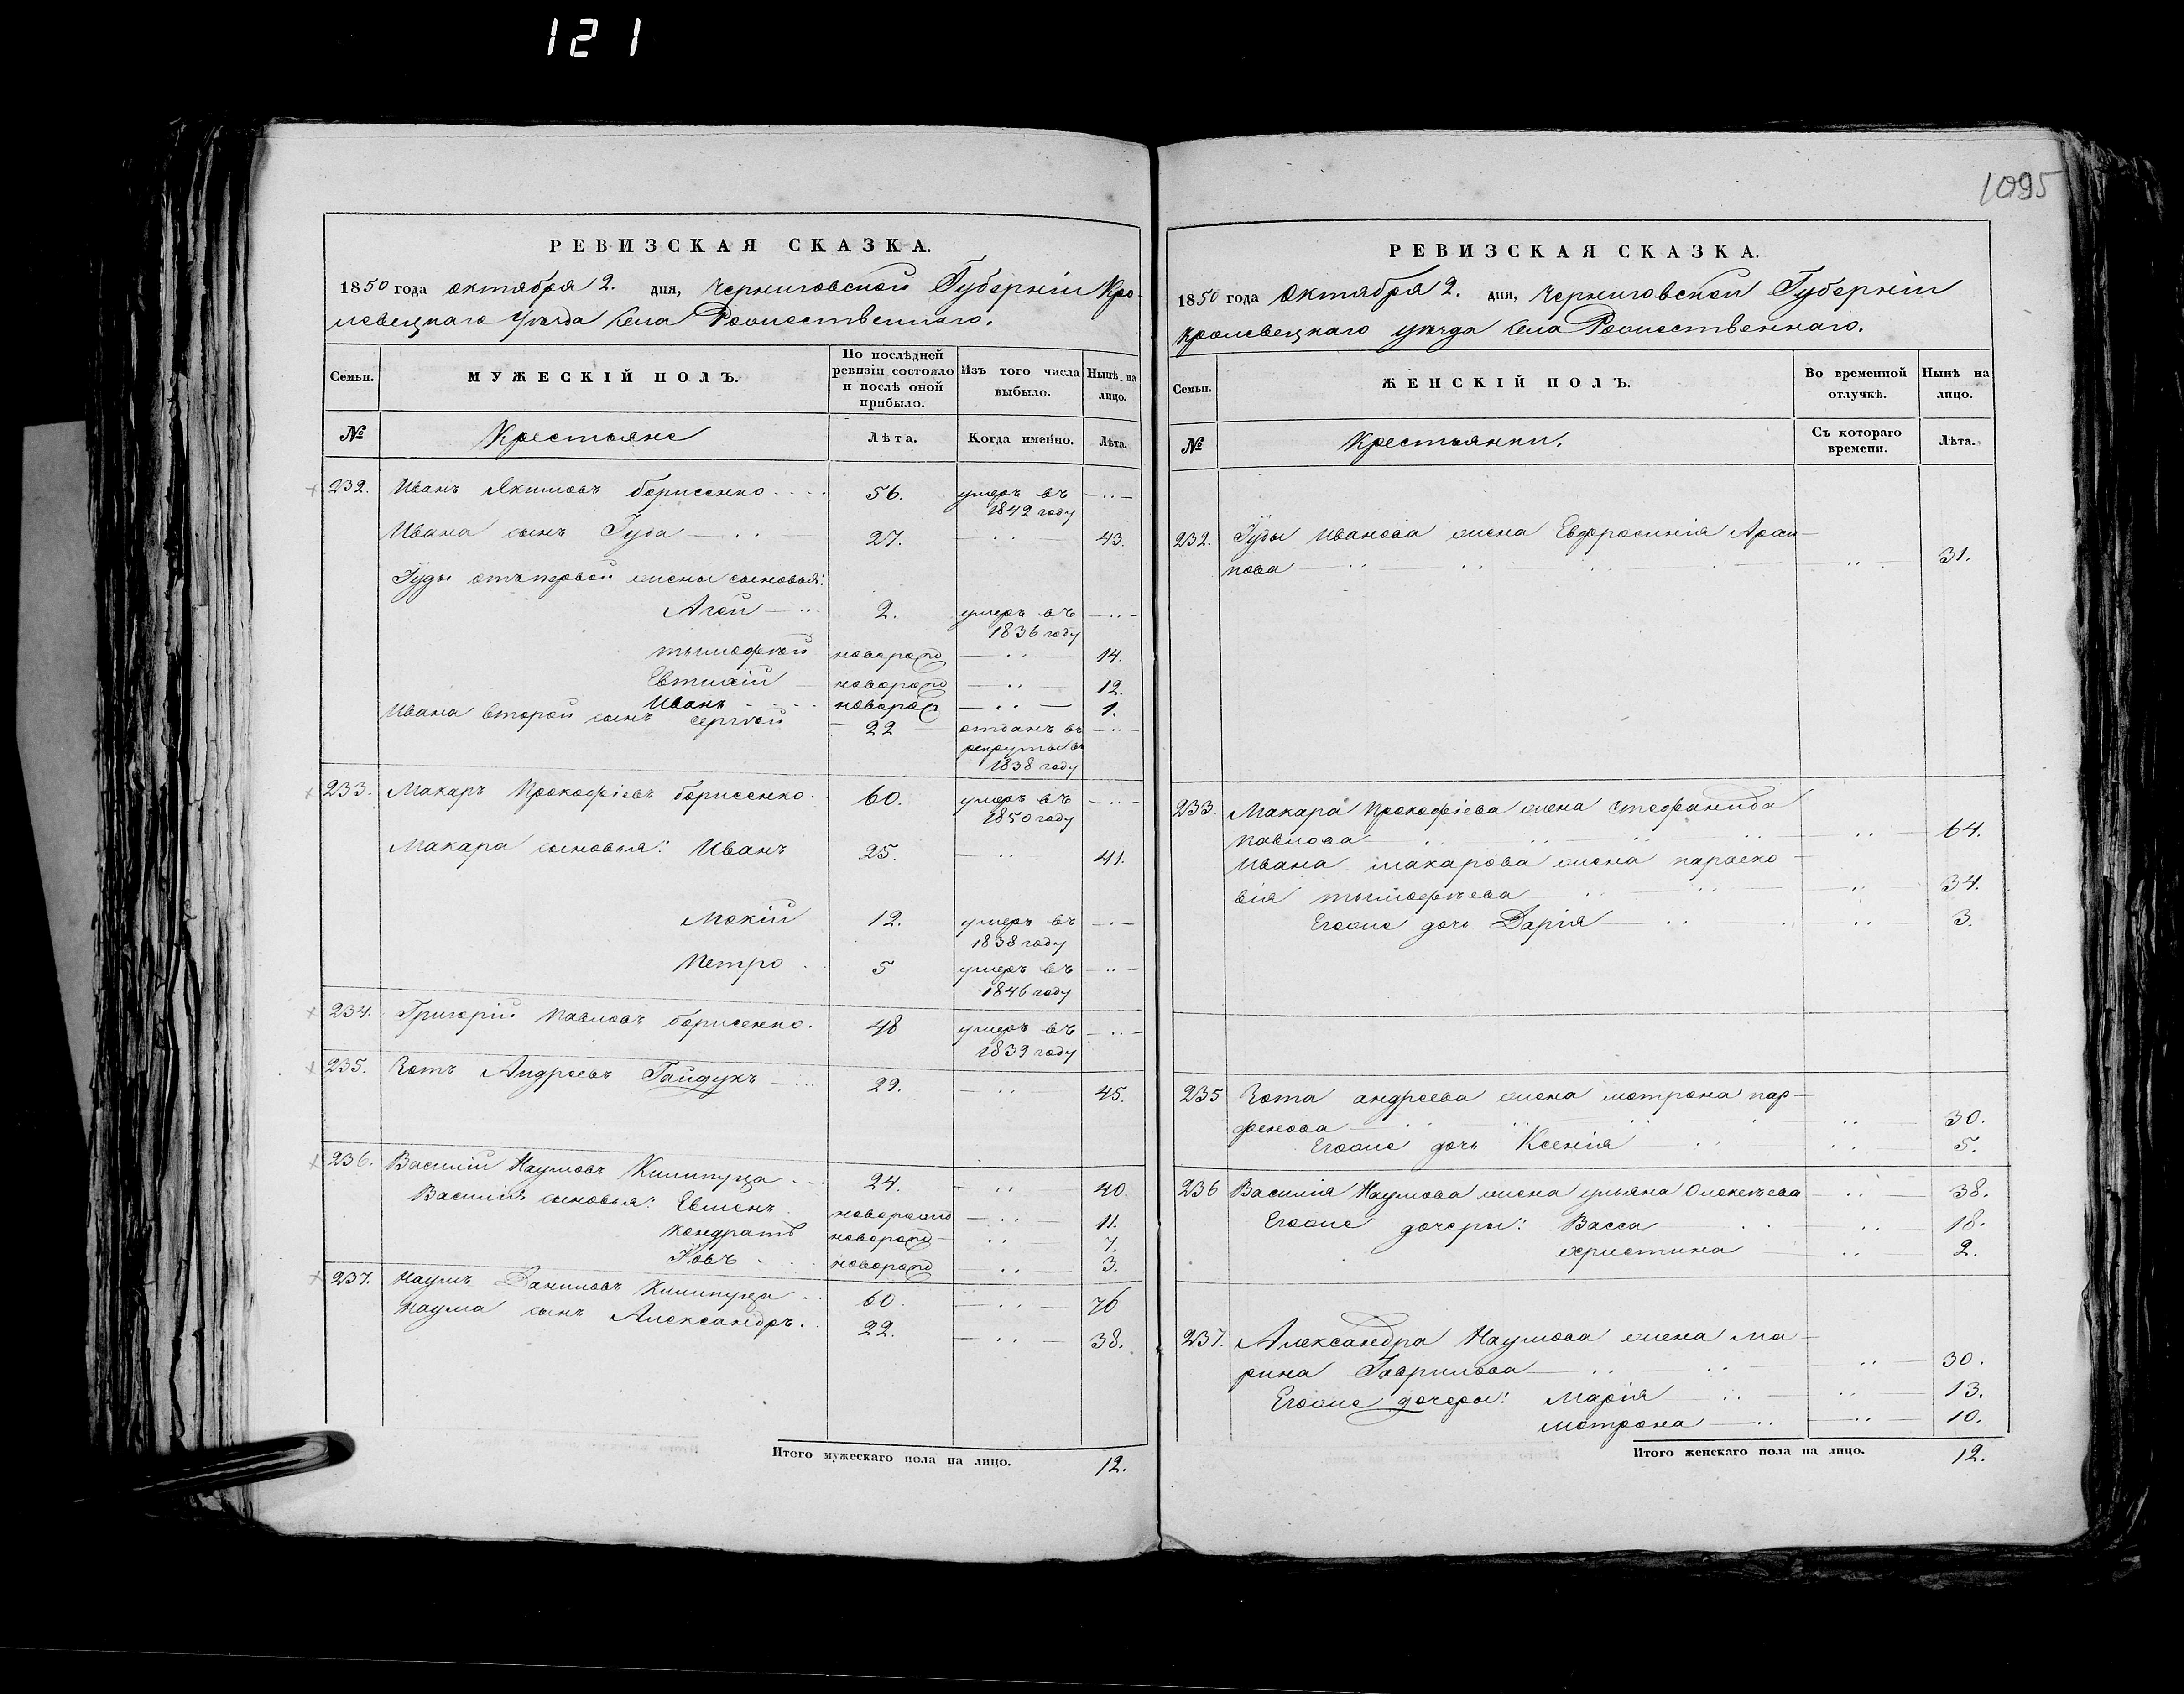 121
1095
РЕВИЗСКАЯ СКАЗКА.
1850 года октября 2. дня, Черниговской Губерніи Кро-
левецкаго уѣзда села Рожественнаго.
Семьи.
МУЖЕСКІЙ ПОЛЪ.
По послѣдней ревизіи состояло и послѣ оной прибыло.
Изъ того числа выбыло.
Нынѣ на лицо.
№ Крестьяне Лѣта. Когда именно. Лѣта.
232. Иванъ Якимовъ Борисенко 56. умеръ въ 1842 году
Ивана сынъ Іуда 27. 43.
Іуды отъ первой жены сыновья:
Агей 2. умеръ въ 1836 году
Тымофѣй новорожд 14.
Евтихій новорожд 12.
Иванъ новорож 1.
Ивана второй сынъ Сергѣй 22 отданъ въ рекруты въ 1838 году
233. Макаръ Прокофіевъ Борисенко 60. умеръ въ 1850 году
Макара сыновья: Иванъ 25. 41.
Мокій 12. умеръ въ 1838 году
Петро 5 умеръ въ 1846 году
234. Григорій Павловъ Борисенко. 48 умеръ въ 1839 году
235. Зотъ Андреевъ Гайдукъ 29. 45.
236. Василій Наумовъ Килипуца 24. 40.
Василія сыновья: Евменъ новорожд 11.
Кондратъ новорожд 7.
Іовъ новорожд 3.
237. Наумъ Даниловъ Килипуца 60. 76
Наума сынъ Александръ. 22. 38.
Итого мужескаго пола на лицо. 12.
РЕВИЗСКАЯ СКАЗКА.
1850 года Октября 2. дня, Черниговской Губерніи
Кролевецкаго уѣзда села Рожественнаго.
Семьи.
ЖЕНСКІЙ ПОЛЪ.
Во временной отлучкѣ.
Нынѣ на лицо.
№ Крестьянки. Съ котораго времени. Лѣта.
232. Іуды Иванова жена Евфросинія
31.
233. Макара Прокофіева жена Стефанида
Павлова 64.
Ивана Макарова жена Параско-
вія Тымофѣева 34.
Егоже дочь Дарія 3.
235 Зота Андреева жена Мотрона Пар-
фенова 30.
Егоже дочь Ксенія 5.
236 Василія Наумова жена Ульяна Олексѣева 38.
Егоже дочеры: Васса 18.
Христина 2.
237. Александра Наумова жена Ма-
рина Гаврилова 30.
Егоже дочеры: Марія 13.
Мотрона 10.
Итого женскаго пола на лицо. 12.